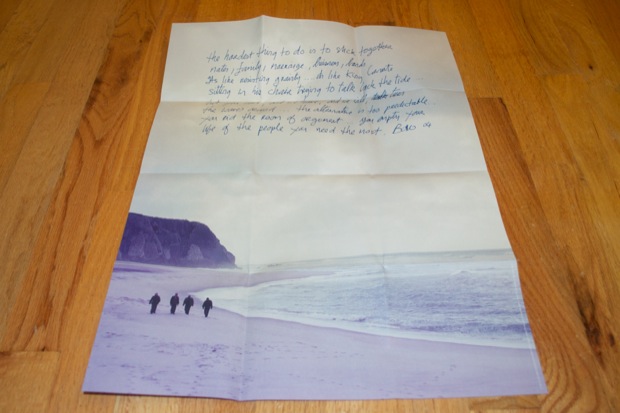 the hardest thing to do is to stick together
mates, family, marriage, business, bands
Its like resisting gravity... its like King Canute
sitting in his chair trying to talk back the tide
the alternative is too predictable
you rid the room of argument... you empty your
life of the people you need the most.